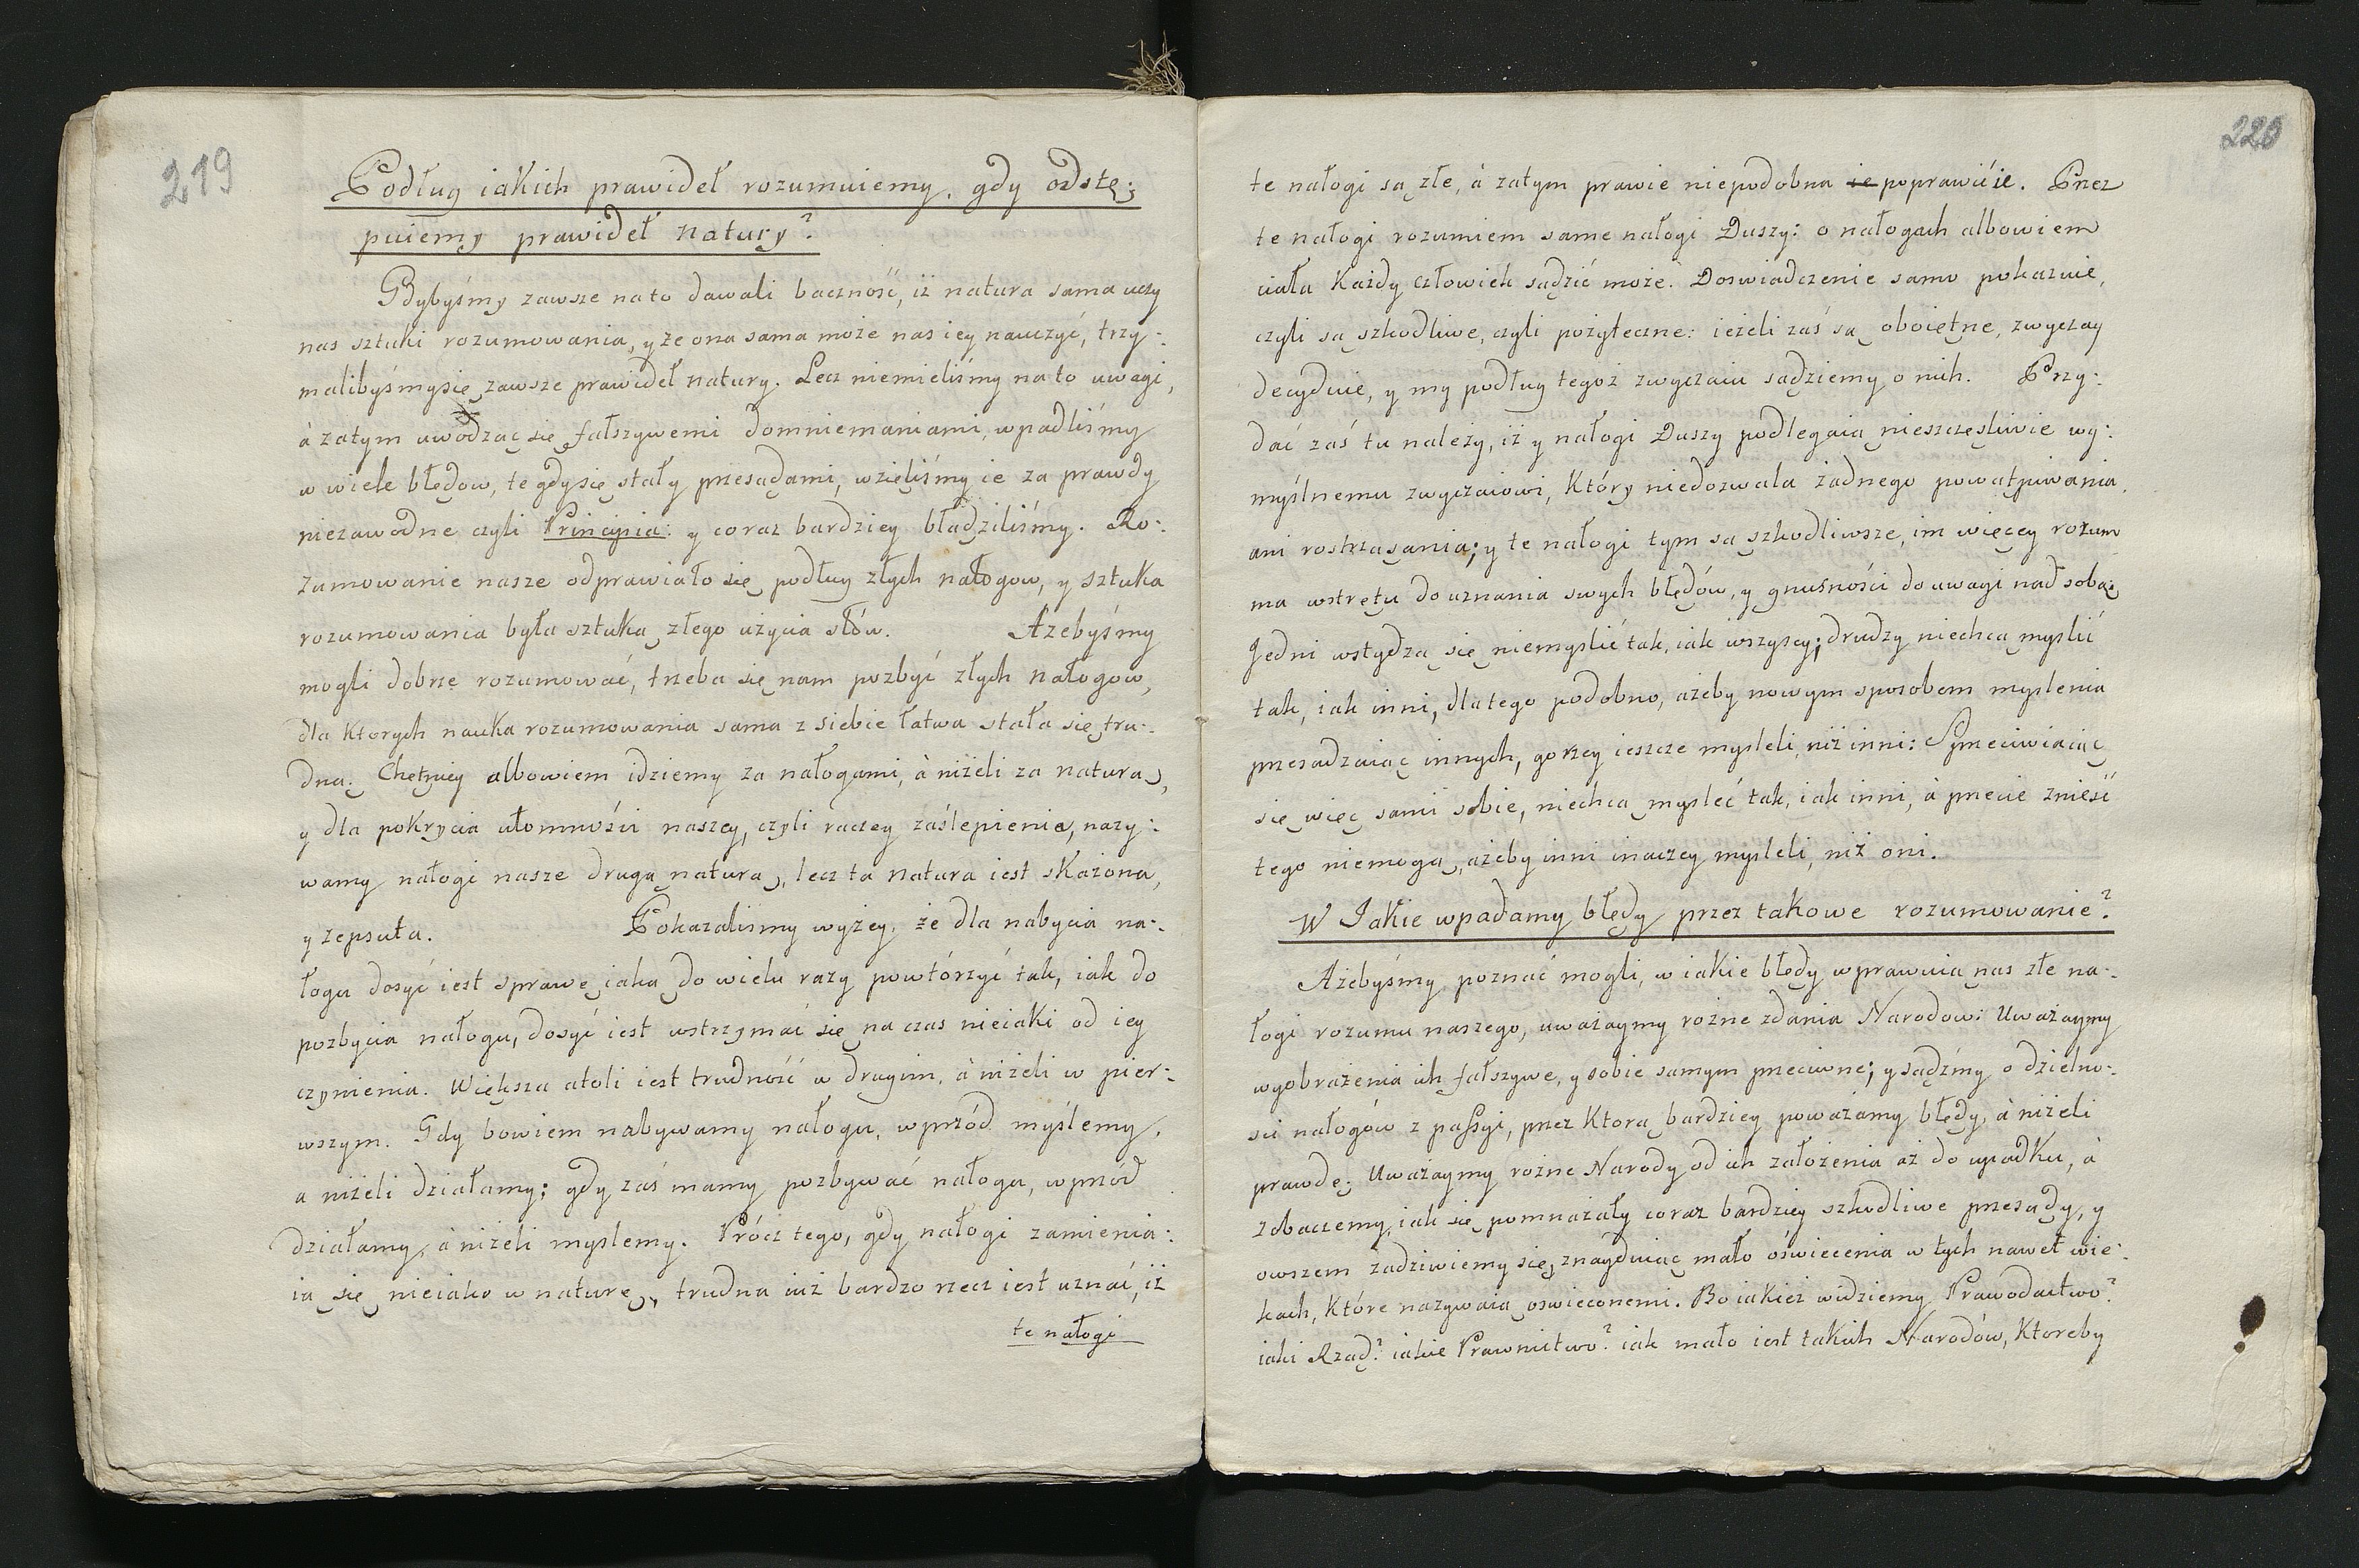 219
Podług iakich prawideł rozumuiemy, gdy odstę:
puiemy prawideł natury?
Gdybyśmy zawsze na to dawali baczność, iż natura sama uczy
nas sztuki rozumowania, y że ona sama może nas iey nauczyć, trzy:
malibyśmysię zawsze prawideł natury. Lecz niemieliśmy na to uwagi,
à zatym uwodząc się fałszywemi domniemaniami, wpadliśmy
w wiele błędow, te gdy się stały przesądami, wzięliśmy ie za prawdy
niezawodne czyli Principia: y coraz bardziey błądziliśmy. Ro:
zumowanie nasze odprawiało się podług złych nałogow, y sztuka
rozumowania była sztuką złego użycia słów. Ażebyśmy
mogli dobrze rozumować, trzeba się nam pozbyć złych nałogow,
dla ktorych nauka rozumowania sama z siebie łatwa stała się tru:
dną. Chętniey albowiem idziemy za nałogami, à niżeli za naturą,
y dla pokrycia ułomności naszey, czyli raczey zaślepienia, nazy:
wamy nałogi nasze drugą naturą, lecz ta natura iest skażona,
y zepsuta. Pokazalismy wyżey, że dla nabycia na:
łogu dosyć iest sprawę iaką do wielu razy powtórzyć tak, iak do
pozbycia nałogu, dosyć iest wstrzymać się na czas nieiaki od iey
czynienia. Większa atoli iest trudność w drugim, à niżeli w pier:
wszym. Gdy bowiem nabywamy nałogu, wprzód myślemy,
a niżeli działamy; gdy zaś mamy pozbywać nałogu, wprzód
działamy, à niżeli myslemy. Prócz tego, gdy nałogi zamienia:
ią się nieiako w naturę, trudna iuż bardzo rzecz iest uznać, iż
te nałogi
220
te nałogi są złe, à zatym prawie niepodobna ie poprawić ie. Przez
te nałogi rozumiem same nałogi Duszy: o nałogach albowiem
ciała Każdy człowiek sądzić może. Doswiadczenie samo pokazuie,
czyli są szkodliwe, czyli pożyteczne: ieżeli zaś są oboiętne, zwyczay
decyduie, y my podług tegoż zwyczaiu sądziemy o nich. Przy:
dać zaś tu należy, iż y nałogi Duszy podlegaią nieszczęsliwie wy:
myślnemu zwyczaiowi, Który niedozwala żadnego powątpiwania,
ani rostrząsania; y te nałogi tym są szkodliwsze, im więcey rozum
ma wstrętu do uznania swych błędów, y gnusności do uwagi nad sobą:
Jedni wstydzą się niemyslić tak, iak wszyscy; drudzy niechcą myslić
tak, iak inni, dlatego podobno, ażeby nowym sposobem myslenia
przesadzaiąc innych, gorzey ieszcze mysleli, niż inni: Sprzeciwiaiąc
się więc sami sobie, niechcą mysleć tak, iak inni, à przecie znieść
tego niemogą, ażeby inni inaczey mysleli, niż oni.
W Jakie wpadamy błędy przez takowe rozumowanie?
Ażebyśmy poznać mogli, w iakie błędy wprawuią nas złe na:
łogi rozumu naszego, uważaymy rożne zdania Narodow: Uważaymy
wyobrażenia ich fałszywe, y sobie samym przeciwne; y sądźmy o dzielno:
ści nałogów z passyi, przez Ktorą bardziey poważamy błędy, à niżeli
prawdę. Uważaymy rożne Narody od ich założenia aż do upadku, à
zobaczemy, iak się pomnażały coraz bardziey szkodliwe przesądy, y
owszem zadziwiemy się, znayduiąc mało oświecenia w tych nawet wie:
kach, Które nazywaią oswieconemi. Bo iakież widziemy Prawodactwo?
iaki Rząd? iakie Prawnictwo? iak mało iest takich Narodów, Ktoreby